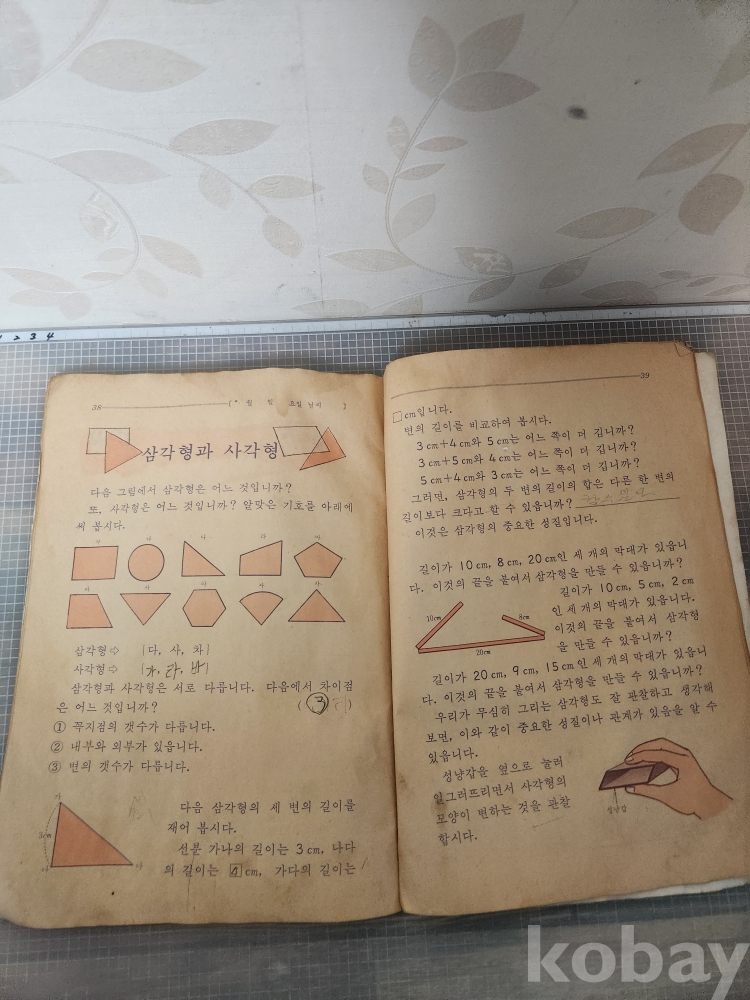 1 2 3 4
38
( 월 일 요일 날씨 )
삼각형과 사각형
다음 그림에서 삼각형은 어느 것입니까?
또, 사각형은 어느 것입니까? 알맞은 기호를 아래에
써 봅시다.
삼각형⇨ |다, 사, 차|
사각형⇨ |가, 라, 바|
삼각형과 사각형은 서로 다릅니다. 다음에서 차이점
은 어느 것입니까? ( ③ )
① 꼭지점의 갯수가 다릅니다.
② 내부와 외부가 있읍니다.
③ 변의 갯수가 다릅니다.
가
3cm
나
다
다음 삼각형의 세 변의 길이를
재어 봅시다.
선분 가나의 길이는 3 cm, 나다
의 길이는 4 cm, 가다의 길이는
39
□cm입니다.
변의 길이를 비교하여 봅시다.
3 cm+4 cm와 5 cm는 어느 쪽이 더 깁니까?
3 cm+5 cm와 4 cm는 어느 쪽이 더 깁니까?
5 cm+4 cm와 3 cm는 어느 쪽이 더 깁니까?
그러면, 삼각형의 두 변의 길이의 합은 다른 한 변의
길이보다 크다고 할 수 있읍니까?
이것은 삼각형의 중요한 성질입니다.
길이가 10 cm, 8 cm, 20 cm인 세 개의 막대가 있읍니
다. 이것의 끝을 붙여서 삼각형을 만들 수 있읍니까?
10cm
8cm
20cm
길이가 10 cm, 5 cm, 2 cm
인 세 개의 막대가 있읍니다.
이것의 끝을 붙여서 삼각형
을 만들 수 있읍니까?
길이가 20 cm, 9 cm, 15 cm인 세 개의 막대가 있읍니
다. 이것의 끝을 붙여서 삼각형을 만들 수 있읍니까?
우리가 무심히 그리는 삼각형도 잘 관찰하고 생각해
보면, 이와 같이 중요한 성질이나 관계가 있음을 알 수
있읍니다.
성냥갑을 옆으로 눌러
일그러뜨리면서 사각형의
모양이 변하는 것을 관찰
합시다.
성냥갑
kobay